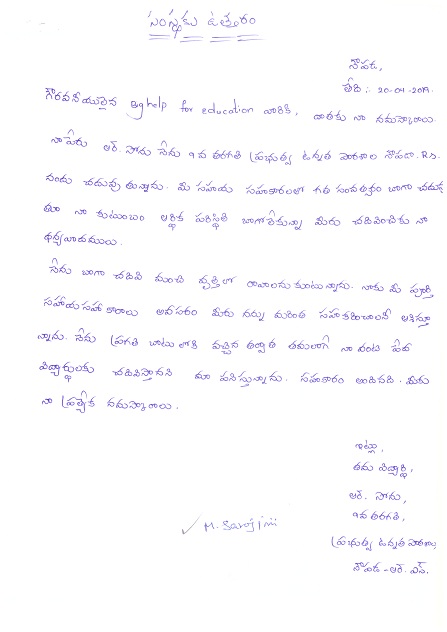 సంస్థకు ఉత్తరం
నౌపడ,
తేది:- 20-04-2019.
గౌరవనీయులైన Big help for education వారికి, దాతకు నా నమస్కారాలు.
నా పేరు ఆర్. సోను నేను 9వ తరగతి ప్రభుత్వ ఉన్నత పాఠశాల నౌపడా. R.s
నందు చదువుతున్నాను. మీ సహాయ సహకారాలతో గత సంవత్సరం బాగా చదువు
తూ నా కుటుంబం ఆర్థిక పరిస్థితి బాగోలేకున్నా మీరు చదివించినకు నా
ధన్యవాదములు.
నేను బాగా చదివి మంచి వృత్తిలో రావాలనుకుంటున్నాను. నాకు మీ పూర్తి
సహాయసహాకారాలు అవసరం మీరు నన్ను మరింత సహకరించాలని ఆశిస్తూ
న్నాను. నేను ప్రగతి బాటలోకి వచ్చిన తర్వాత తమలాగే నా వంటి పేద
విద్యార్థులకు చదివిస్తానని మా మనిస్తున్నాను. సహకారం అందించిన మీకు
నా ప్రత్యేక నమస్కారాలు.
ఇట్లు,
తమ విద్యార్థి,
ఆర్. సోను,
9వ తరగతి,
ప్రభుత్వ ఉన్నత పాఠశాల,
నౌపడ - ఆర్. ఎస్.
M. Sarojini